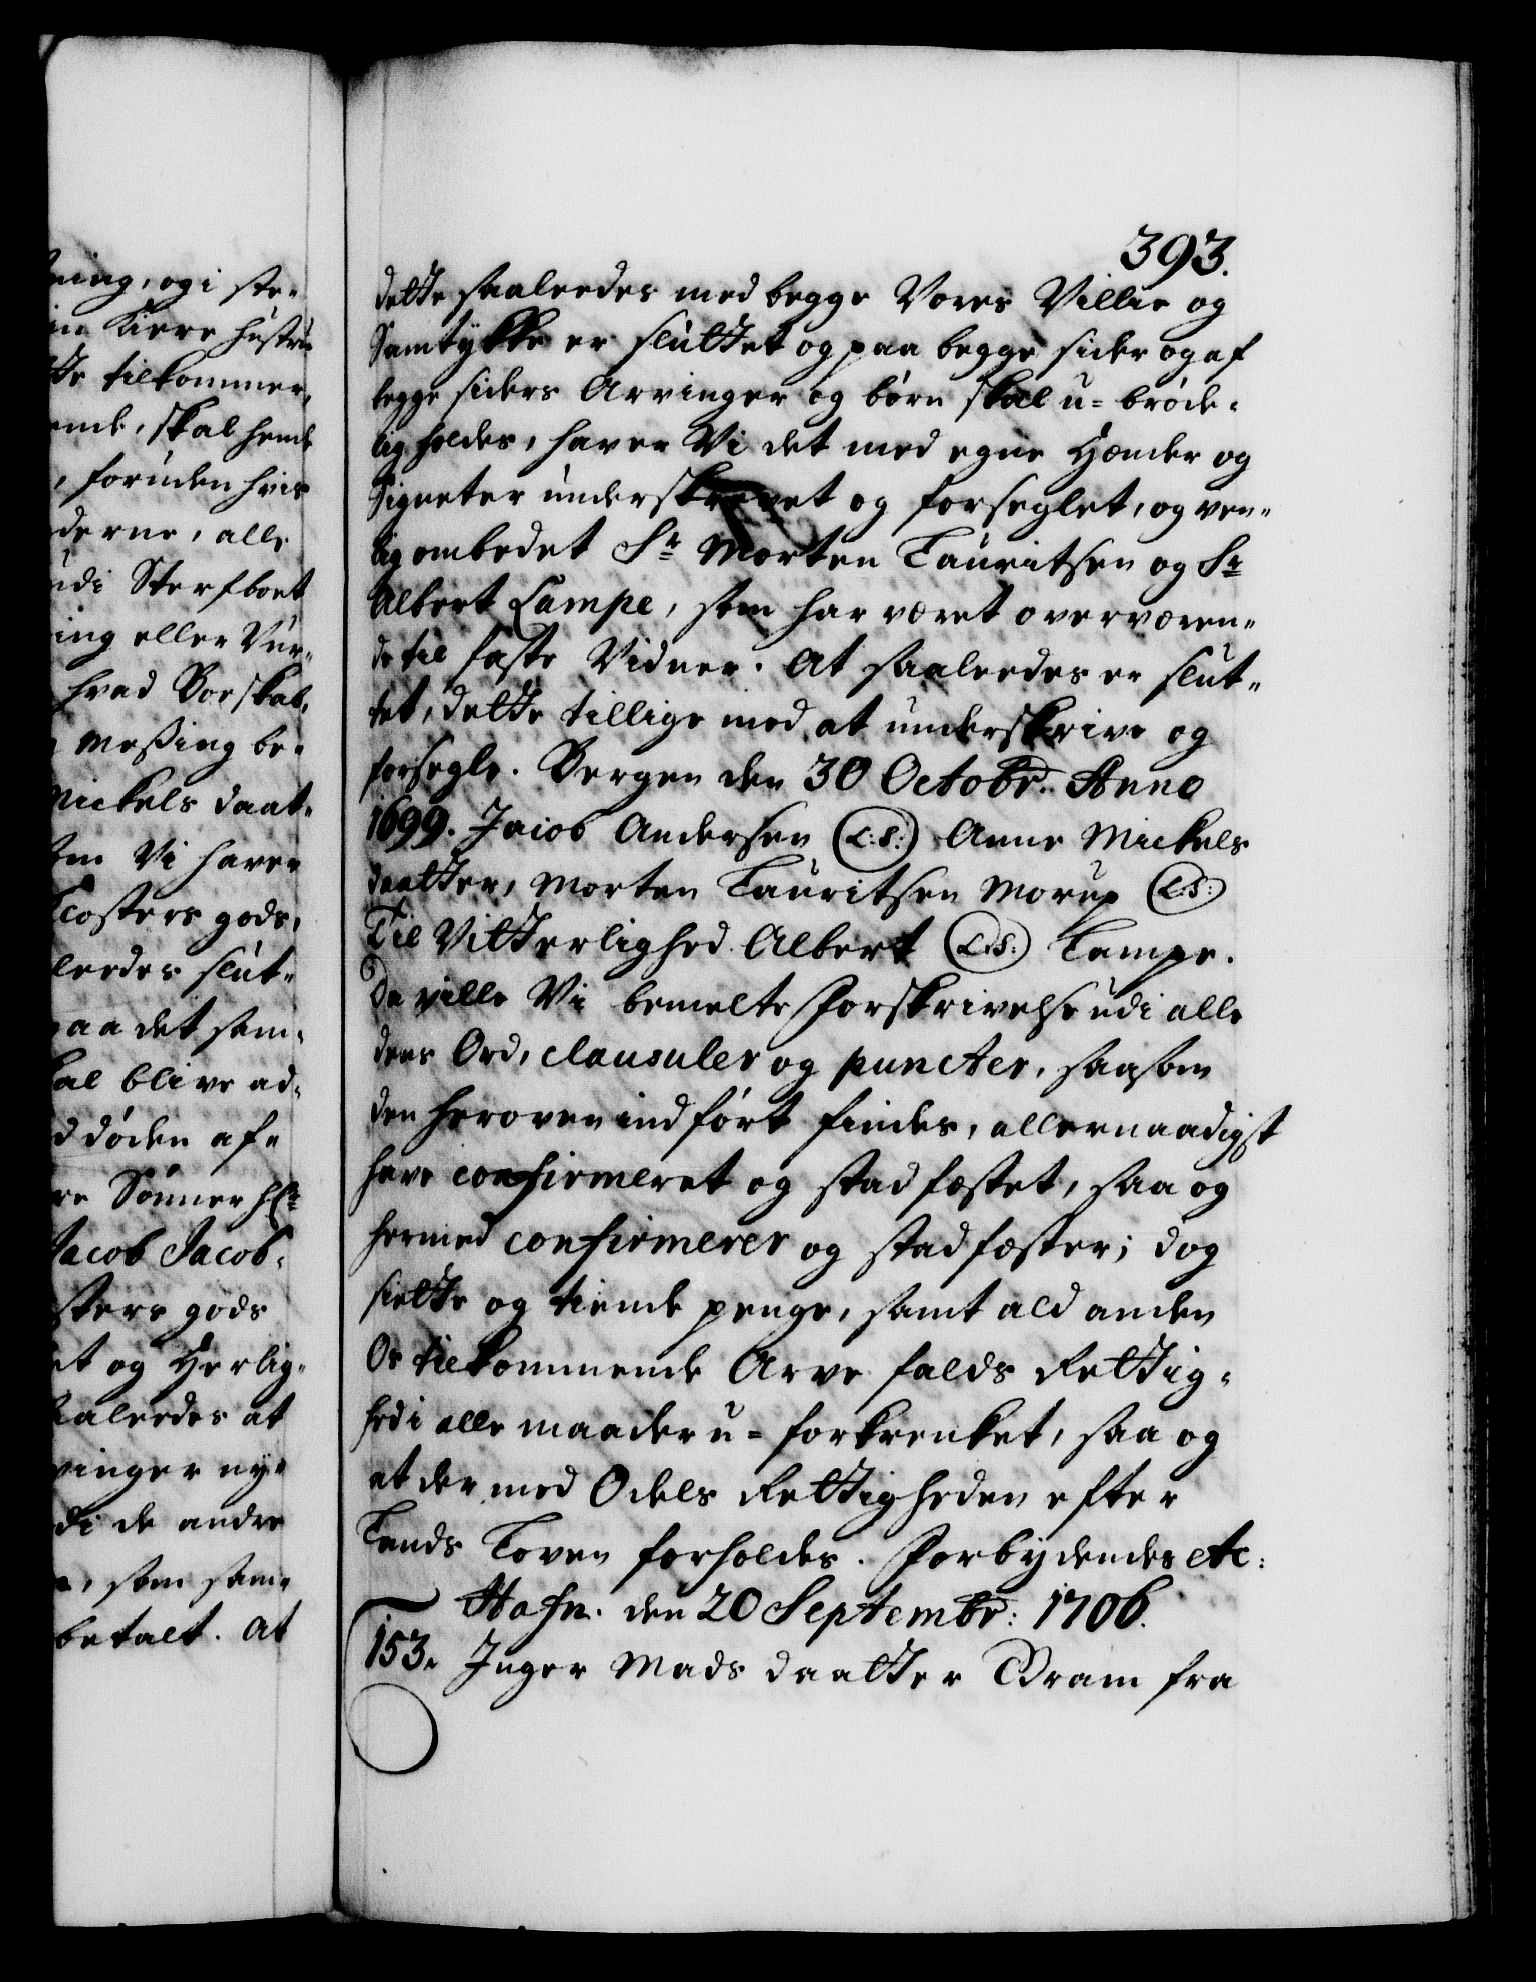 393.
dette saaleedes med begge Vores Villie og
Samtykke er sluttet og paa begge sider og af
begge siders Arvinger og børn skal u-brøde-
lig holdes, haver Vi det med egne Hænder og
Signeter underskrevet og forseglet, og ven-
lig ombedet Sr Morten Lauritsen og Sr
Albert Lampe, som har været overværen-
de til faste Vidner. At saaleedes er slut-
tet, dette tillige med at underskrive og
forsegle. Bergen den 30 Octobr. Anno
1699. Jacob Andersen (L:S:) Anne Mickels
daatter, Morten Lauritsen Morup (L:S:)
Til Vitterlighed Albert (L:S:) Lampe.
Da ville Vi bemelte Forskrivelse udi alle
dens Ord, clausuler og puncter, saasom
den heroven indført findes, allernaadigst
have confirmeret og stadfæstet, saa og
hermed confirmerer og stadfæster; dog
siette og tiende penge, samt ald anden
Os tilkommende Arve falds Rettig-
hed i alle maader u-forkrenket, saa og
at der med Odels Rettigheden efter
Lands Loven forholdes. Forbydendes etc:
Hafn. den 20 Septembr: 1706.
153. Inger Mads daatter Bram fra
ning, og i ste-
in Kiere Hustru
tte tilkommer,
ende, skal hende
, foruden hvis
derne, alle
udi Sterfboet
ing eller Vur-
hvad Boeskab,
Messing be-
Mickels daat-
som Vi haver
Closters gods,
leedes slut-
paa det sam-
kal blive ad-
d døden af-
re Sønner Hr
Jacob Jacob-
sters gods
et og Herlig-
saaleedes at
vinger ny-
di de andre
, som sam-
betalt. At